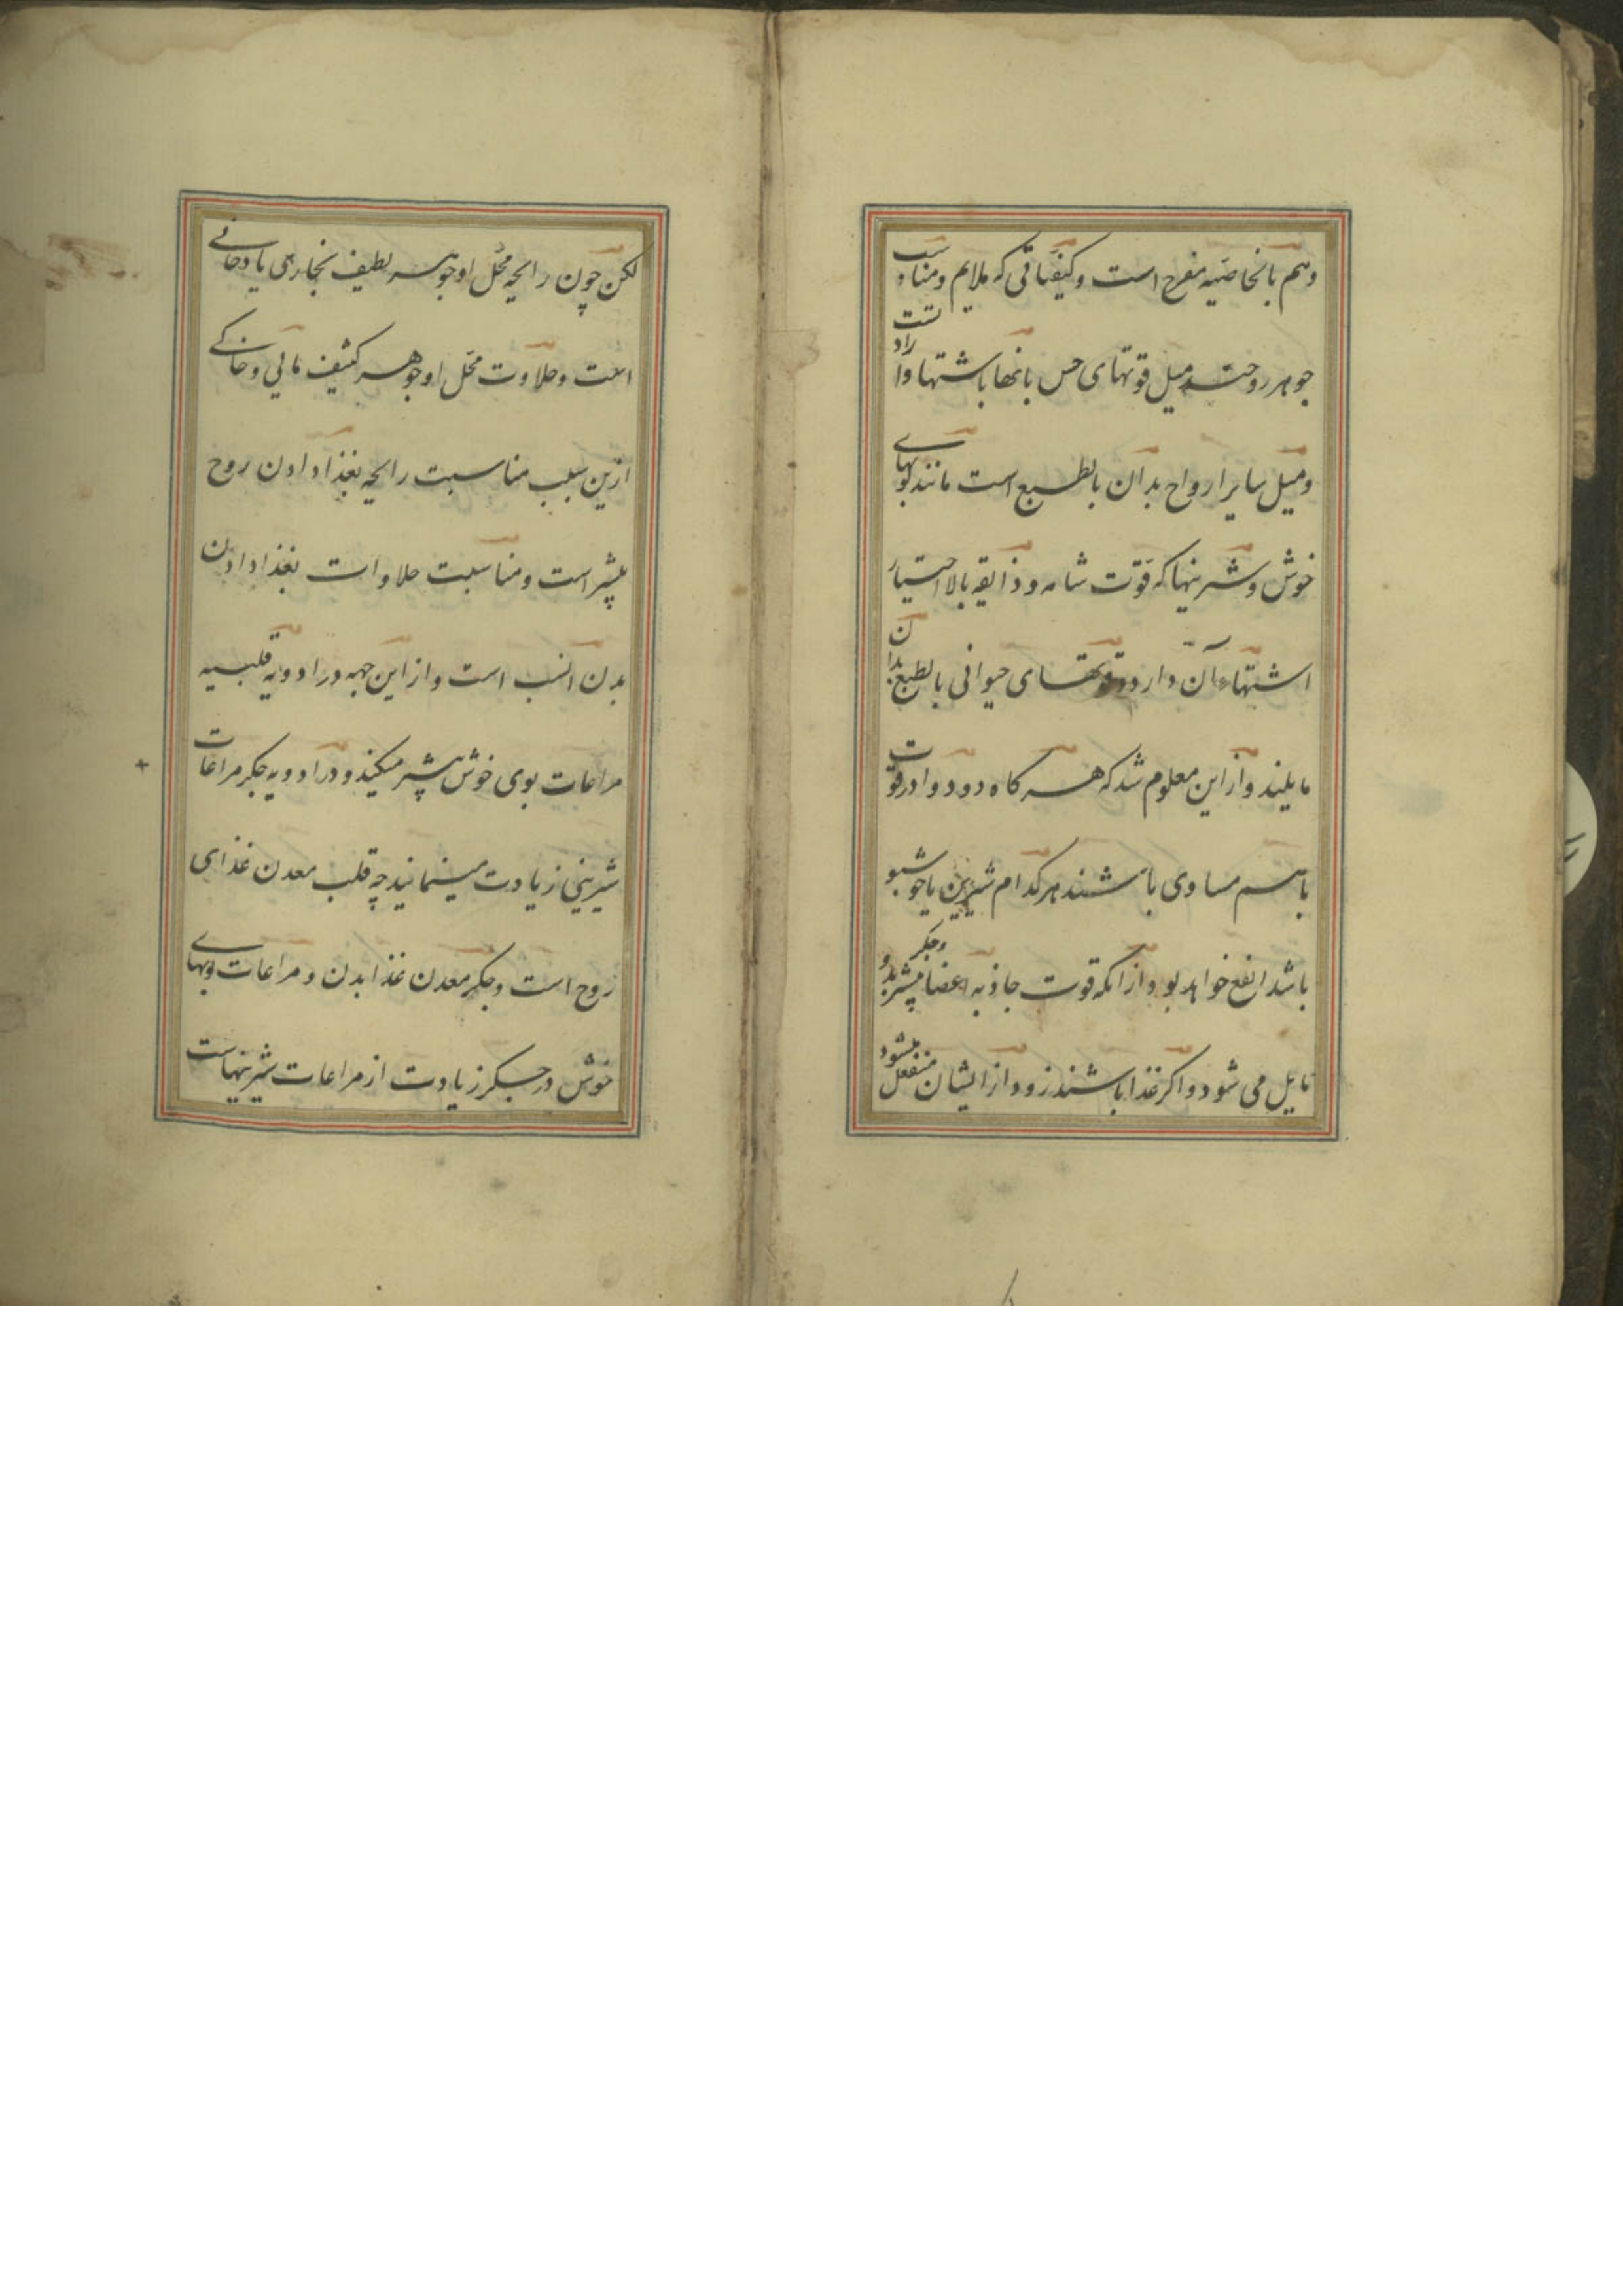 وهم بالخاصیه مفرح است و کیفیاتی که ملایم و مناسب
جوهر روحند میل قوتهای حس بانها باشتها و ارادتست
و میل سایر ارواح بدان بالطبع است مانند بویهای
خوش و شرینیها که قوت شامه و ذایقه بالاختیار
اشتهاء آن دارد و قوتهای حیوانی بالطبع بدان
مایلند و از این معلوم شد که هر کاه دو دوا در قوت
باهم مساوی باشند هر کدام شیرین یا خوشبو
باشد انفع خواهد بود از آنکه قوت جاذبه اعضا بیشتر بدو
مایل می شود و اکر غذا باشند زود از ایشان منفعل میشود
لکن چون رایحه محل او جوهر لطیف بخاری یا دخانی
است و حلاوت محل او جوهر کثیف مائی و خاکی
ازین سبب مناسبت رایحه بغذا دادن روح
بیشتر است و مناسبت حلاوات بغذا دادن
بدن انسب است و از این جهه در ادویه قلبیه
مراعات بوی خوش بیشتر میکنند و در ادویه جکر مراعات
شیرینی زیادت مینمایند چه قلب معدن غذای
روح است و جکر معدن غذا بدن و مراعات بویهای
خوش در جکر زیادت از مراعات شیرینهاست